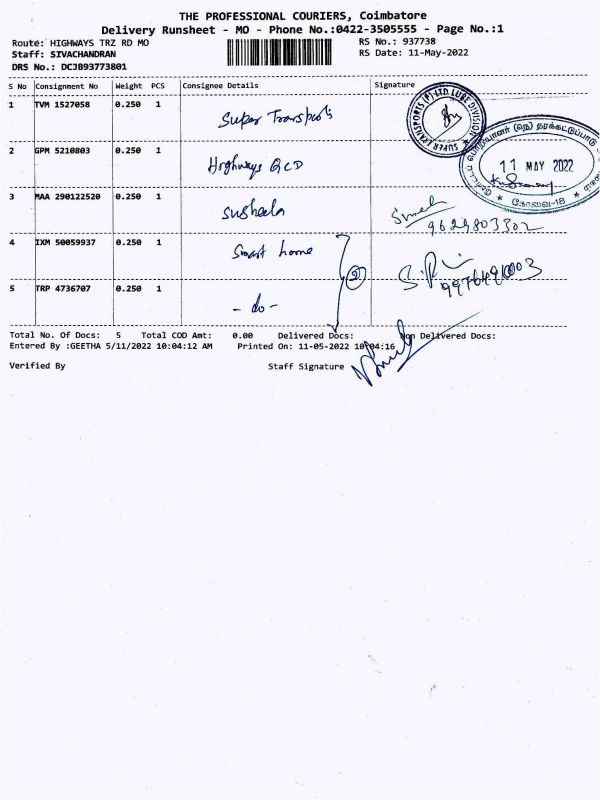 THE PROFESSIONAL COURIERS, Coimbatore
Delivery Runsheet - MO - Phone No.:0422-3505555 - Page No.:1
Route: HIGHWAYS TRZ RD MO
RS No.: 937738
Staff: SIVACHANDRAN
RS Date: 11-May-2022
DRS No.: DCJB93773801
S No Consignment No Weight PCS Consignee Details Signature
1 TVM 1527058 0.250 1 Super Transports
SUPER TRANSPORTS (P) LTD LUBE DIVISION
2 GPM 5210803 0.250 1 Highways QCD
11 MAY 2022
கோவை-18
3 MAA 290122520 0.250 1 susheela
9629803302
4 IXM 50059937 0.250 1 Smart home
2
5 TRP 4736707 0.250 1 - do -
Total No. Of Docs: 5 Total COD Amt: 0.00 Delivered Docs: Non Delivered Docs:
Entered By :GEETHA 5/11/2022 10:04:12 AM Printed On: 11-05-2022 10:04:16
Verified By Staff Signature